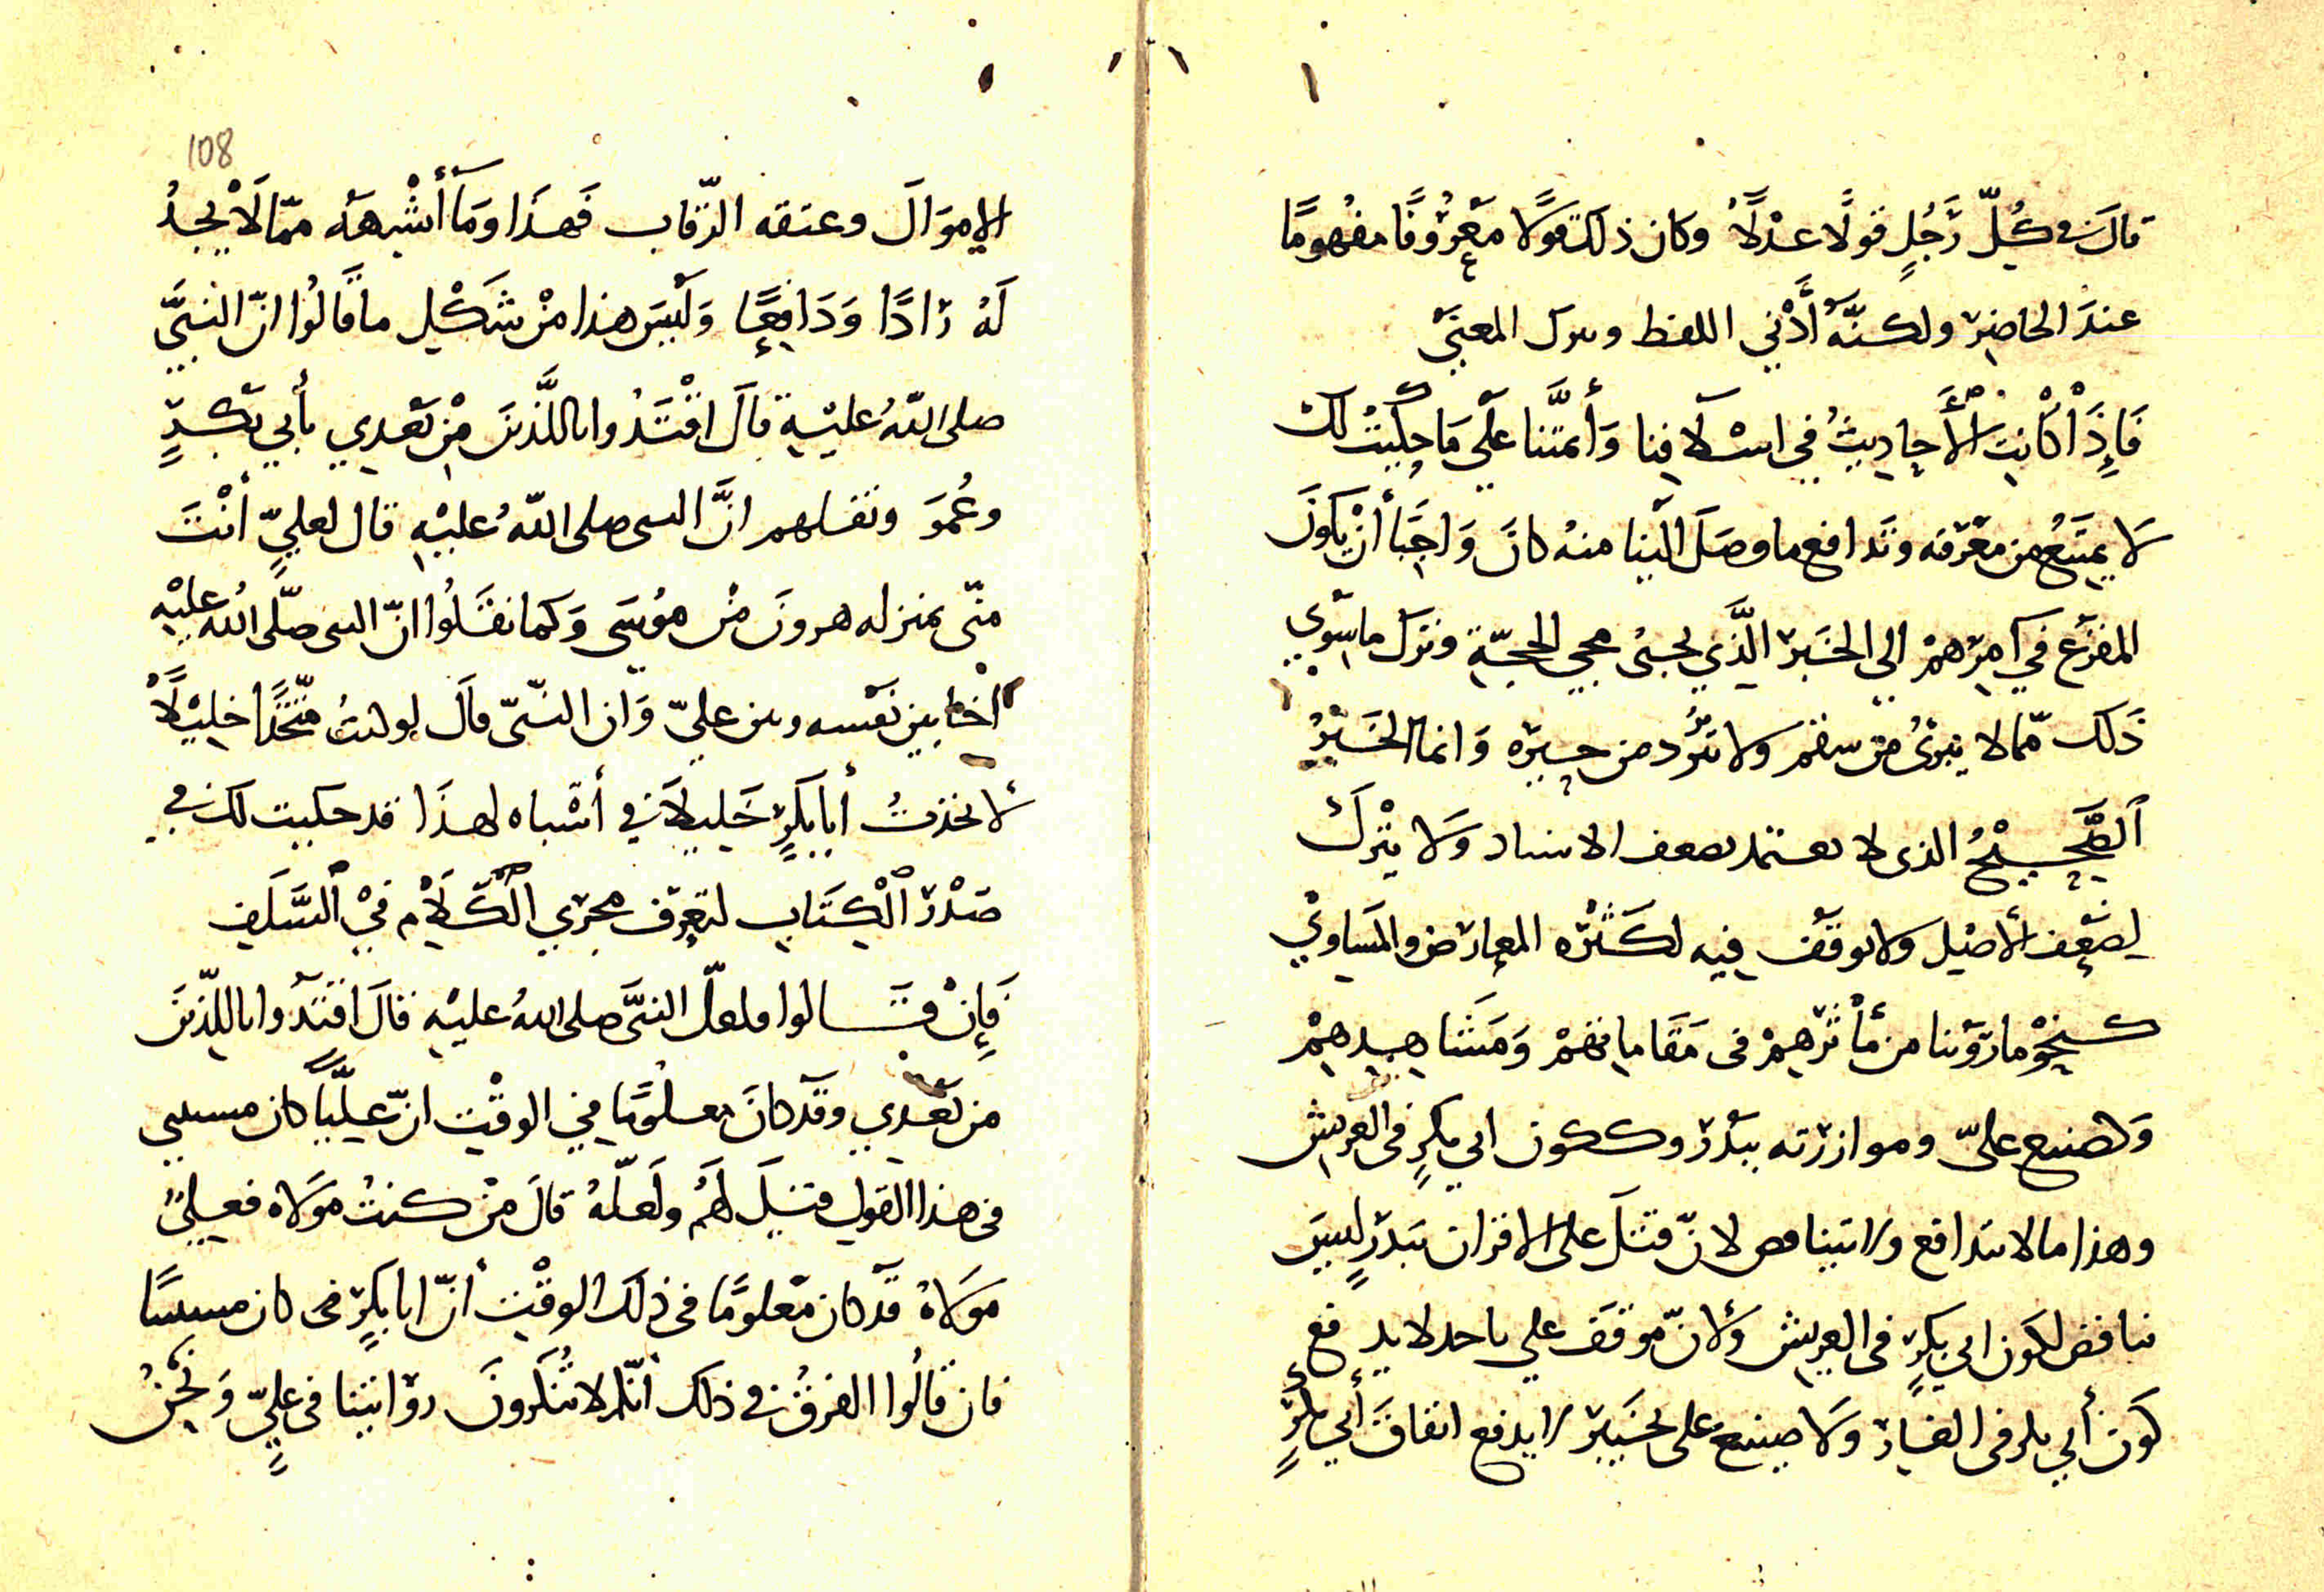 قال في كُلّ رَجُلٍ قولًا عدْلًا وكان ذلك قولا مَعْرُوفًا مفهومًا
عندَ الحاضِر ولكنَّه أدّني اللفظ وترك المعنَي
فَإِذَا كانت الأَحاديثُ في اسْلَافِنا وَأئمتَّنا علَي مَا حكَيتُ لك
لَا يمتَنعُ من مَعْرَفه وتَدافع ما وصَلَ الَينا منهُ كانَ وَاجبًا أنْ يكونَ
المفزَع في اَمِرْهمْ الي الخَبر الَّذي يجيُ مجي الحجّةِ ونترك ما سِوَي
ذَلك ممّا لا يبرئُ من سقم ولا يَرُد من حيره وَانما الخَبَرُ
الصَّحِيْحُ الذى لا يعتمد بضعف الاسناد وَلَا يتْرك
لِضَعِف الأصْل ولا يوقَف فيه لكَثْره المعارض والمَساوِيْ
كنحْو ما رَوَينا من مأْثَرهمْ فى مَقَاماتهمْ وَمَشَاهِدهِمْ
وَكصنيع عليّ وموازرَته ببَدْر وككون ابي بكرٍ فى العَريش
وهذا ما لا يتدافع ولا يتناقض لانّ قتَل علي الاقران ببَدْرٍ ليسَ
يناقض لكَون ابي بكرٍ فى العريش ولأنّ موقَف علي باحد لا يدفع
كَون أبي بكر فى الغَار وَلَا صنيعُ على بخَيبر لا يدفع انفاقَ أبي بكرٍ
108
الامَوَالَ وعتقه الرّقاب فَهذَا وَمَا أَشْبهَه ممّا لَا يجدُ
لَهُ رَادًا وَدَافِعًا وَلَيسَ هذا مِنْ شَكْل ما قَالُوا انّ النبَيَّ
صلى اللّهُ عليْهِ قالَ اقْتَدُوا باللَّذينَ مِنْ بَعْدِي بأبي بَكْرٍ
وعُمَر ونقلهم انَّ النبى صلى اللّهُ عليْهِ قال لعليٍّ أنْتَ
منّى بمنزله هرونَ مِنْ مُوسَى وَكما نقَلُوا انّ النبى صلّى اللهُ عليْه
اخَا بين نَفْسه وبين عليّ وَان النّبىّ قالَ لو كنتُ متّخذًا خليْلًا
لأتخذتُ أبا بَكرٍ خَليلًا في أشْباه لهذَا قد حكيت لك في
صَدْرِ الْكِتَابِ لتعِرَف مجرَي الكَلَام فيْ السَّلَف
فَإِنْ قَالوا فلعلّ النبَّى صلى اللهُ عليْهِ قالَ اقتَدُوا باللّذينَ
من بَعْدِي وقَد كانَ معلُومًا في الوقْت انّ عليًّا كان
فى هذا القول قيْلَ لهَمُ ولَعلّهُ قالَ مَنْ كنتُ مَولَاه فعلِيٌّ
مَولَاهُ قَد كان مَعْلومًا فى ذلَك الوقْت أنّ ابا بكرٍ كان
فان قالُوا الفرقُ في ذلك أنّكم لا تُنْكرونَ روَايتنا فى عليٍّ وَنَحْنُ